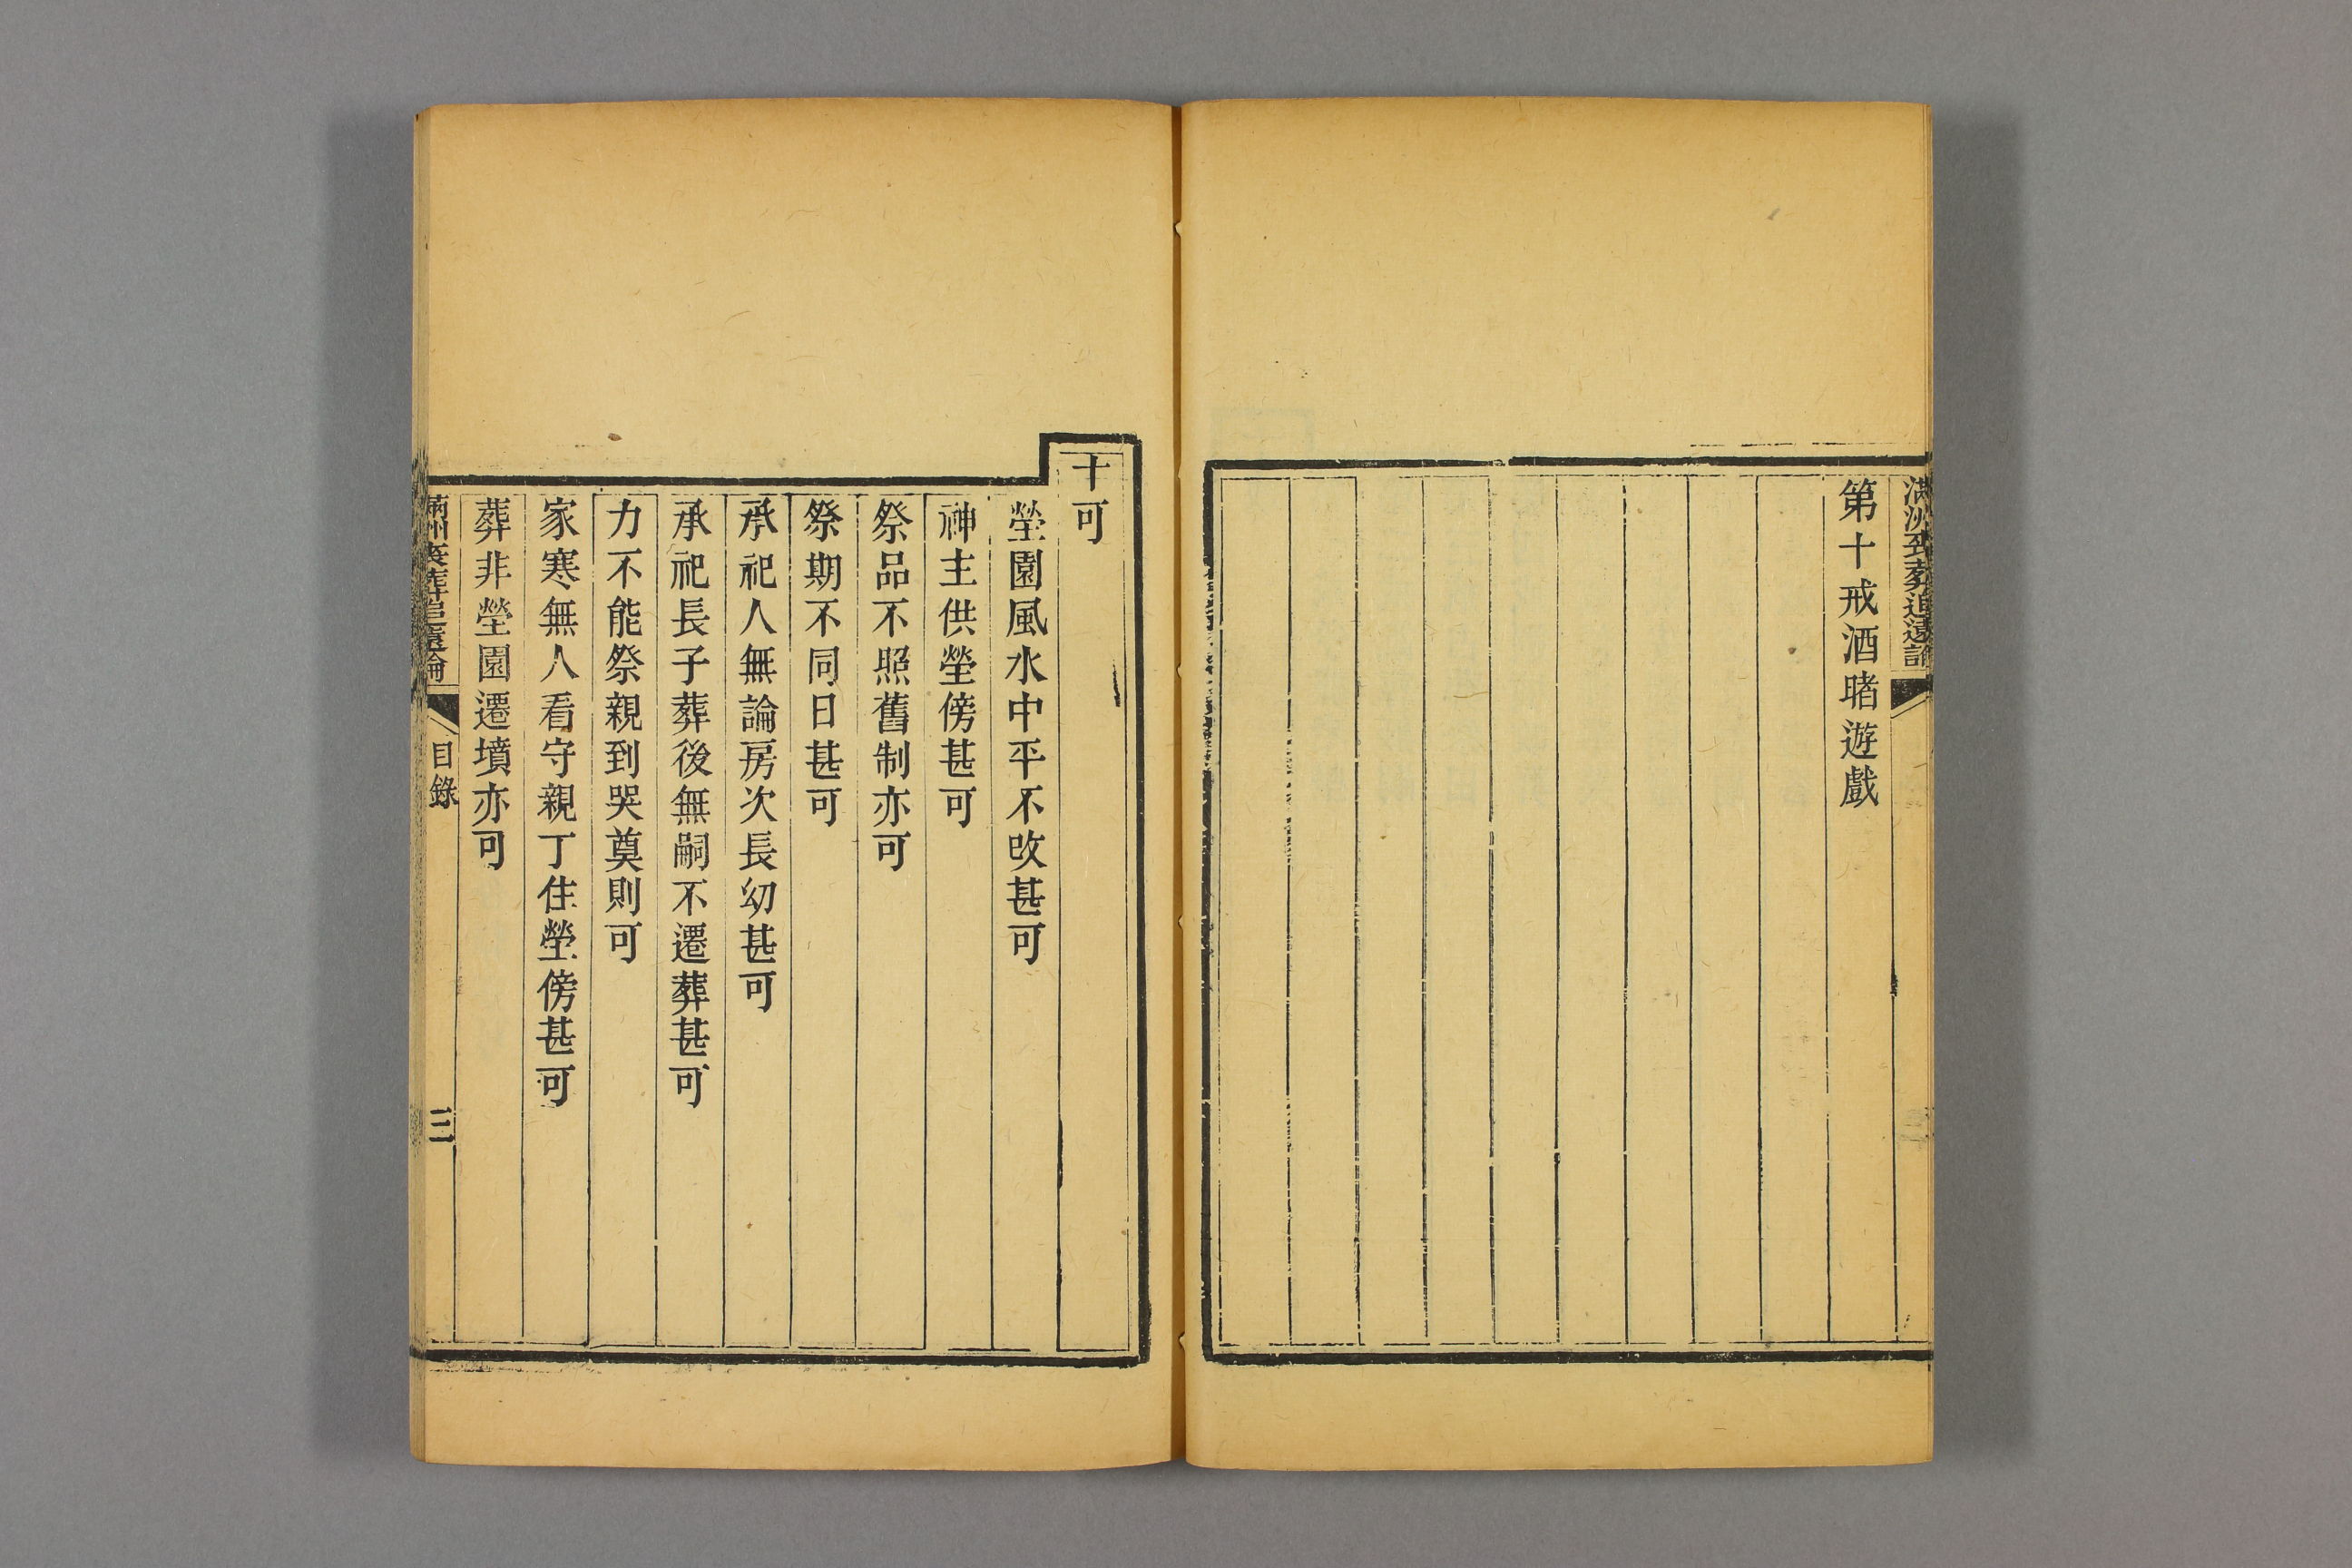 第十戒酒賭遊戲
十可
塋園風水中平不改甚可
神主供塋傍甚可
祭品不照舊制亦可
祭期不同日甚可
承祀人無論房次長幼甚可
承祀長子葬後無嗣不遷葬甚可
力不能祭親到哭奠則可
家寒無人看守親丁住塋傍甚可
葬非塋園遷墳亦可
滿洲喪葬追遠論
目錄
三